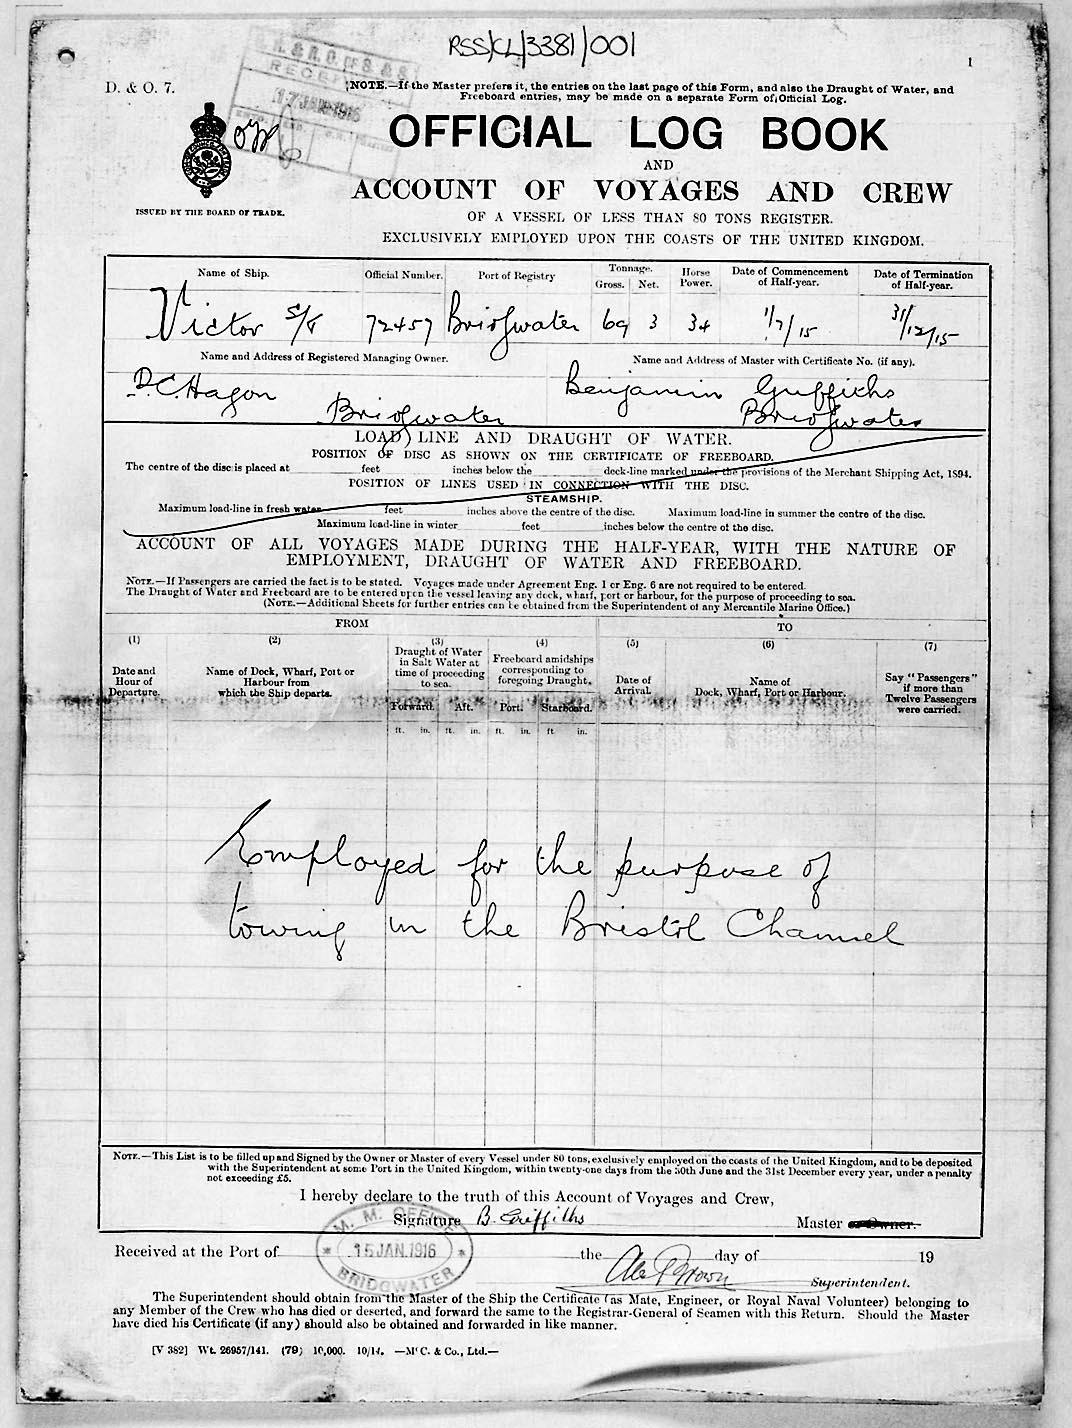 RSS/CL/3381/001
1
D. & O. 7.
RECEIVED
17 JAN 1916
NOTE.—If the Master prefers it, the entries on the last page of this Form, and also the Draught of Water, and
Freeboard entries, may be made on a separate Form of Official Log.
OFFICIAL LOG BOOK
AND
ACCOUNT OF VOYAGES AND CREW
ISSUED BY THE BOARD OF TRADE.
OF A VESSEL OF LESS THAN 80 TONS REGISTER.
EXCLUSIVELY EMPLOYED UPON THE COASTS OF THE UNITED KINGDOM.
Name of Ship. Official Number. Port of Registry Tonnage. Gross. Net. Horse Power. Date of Commencement of Half-year. Date of Termination of Half-year.
Victor S/T 72457 Bridgwater 69 3 34 1/7/15 31/12/15
Name and Address of Registered Managing Owner. Name and Address of Master with Certificate No. (if any).
D.C. Hagon Benjamin Griffiths
Bridgwater Bridgwater
LOAD LINE AND DRAUGHT OF WATER.
POSITION OF DISC AS SHOWN ON THE CERTIFICATE OF FREEBOARD.
The centre of the disc is placed at feet inches below the deck-line marked under the provisions of the Merchant Shipping Act, 1894.
POSITION OF LINES USED IN CONNECTION WITH THE DISC.
STEAMSHIP.
Maximum load-line in fresh water feet inches above the centre of the disc. Maximum load-line in summer the centre of the disc.
Maximum load-line in winter feet inches below the centre of the disc.
ACCOUNT OF ALL VOYAGES MADE DURING THE HALF-YEAR, WITH THE NATURE OF
EMPLOYMENT, DRAUGHT OF WATER AND FREEBOARD.
NOTE.—If Passengers are carried the fact is to be stated. Voyages made under Agreement Eng. 1 or Eng. 6 are not required to be entered.
The Draught of Water and Freeboard are to be entered upon the vessel leaving any dock, wharf, port or harbour, for the purpose of proceeding to sea.
(NOTE.—Additional Sheets for further entries can be obtained from the Superintendent of any Mercantile Marine Office.)
FROM TO
(1) (2) (3) (4) (5) (6) (7)
Date and Hour of Departure. Name of Dock, Wharf, Port or Harbour from which the Ship departs. Draught of Water in Salt Water at time of proceeding to sea. Freeboard amidships corresponding to foregoing Draught. Date of Arrival. Name of Dock, Wharf, Port or Harbour. Say "Passengers" if more than Twelve Passengers were carried.
Forward. Aft. Port. Starboard.
ft. in. ft. in. ft. in. ft. in.
Employed for the purpose of
towing in the Bristol Channel
NOTE.—This List is to be filled up and Signed by the Owner or Master of every Vessel under 80 tons, exclusively employed on the coasts of the United Kingdom, and to be deposited
with the Superintendent at some Port in the United Kingdom, within twenty-one days from the 30th June and the 31st December every year, under a penalty
not exceeding £5.
I hereby declare to the truth of this Account of Voyages and Crew,
Signature B. Griffiths Master or Owner.
M. M. OFFICE
15 JAN. 1916
BRIDGWATER
Received at the Port of the day of 19
Brown Superintendent.
The Superintendent should obtain from the Master of the Ship the Certificate (as Mate, Engineer, or Royal Naval Volunteer) belonging to
any Member of the Crew who has died or deserted, and forward the same to the Registrar-General of Seamen with this Return. Should the Master
have died his Certificate (if any) should also be obtained and forwarded in like manner.
[V 382] Wt. 26957/141. (79) 10,000. 10/14. —McC. & Co., Ltd.—